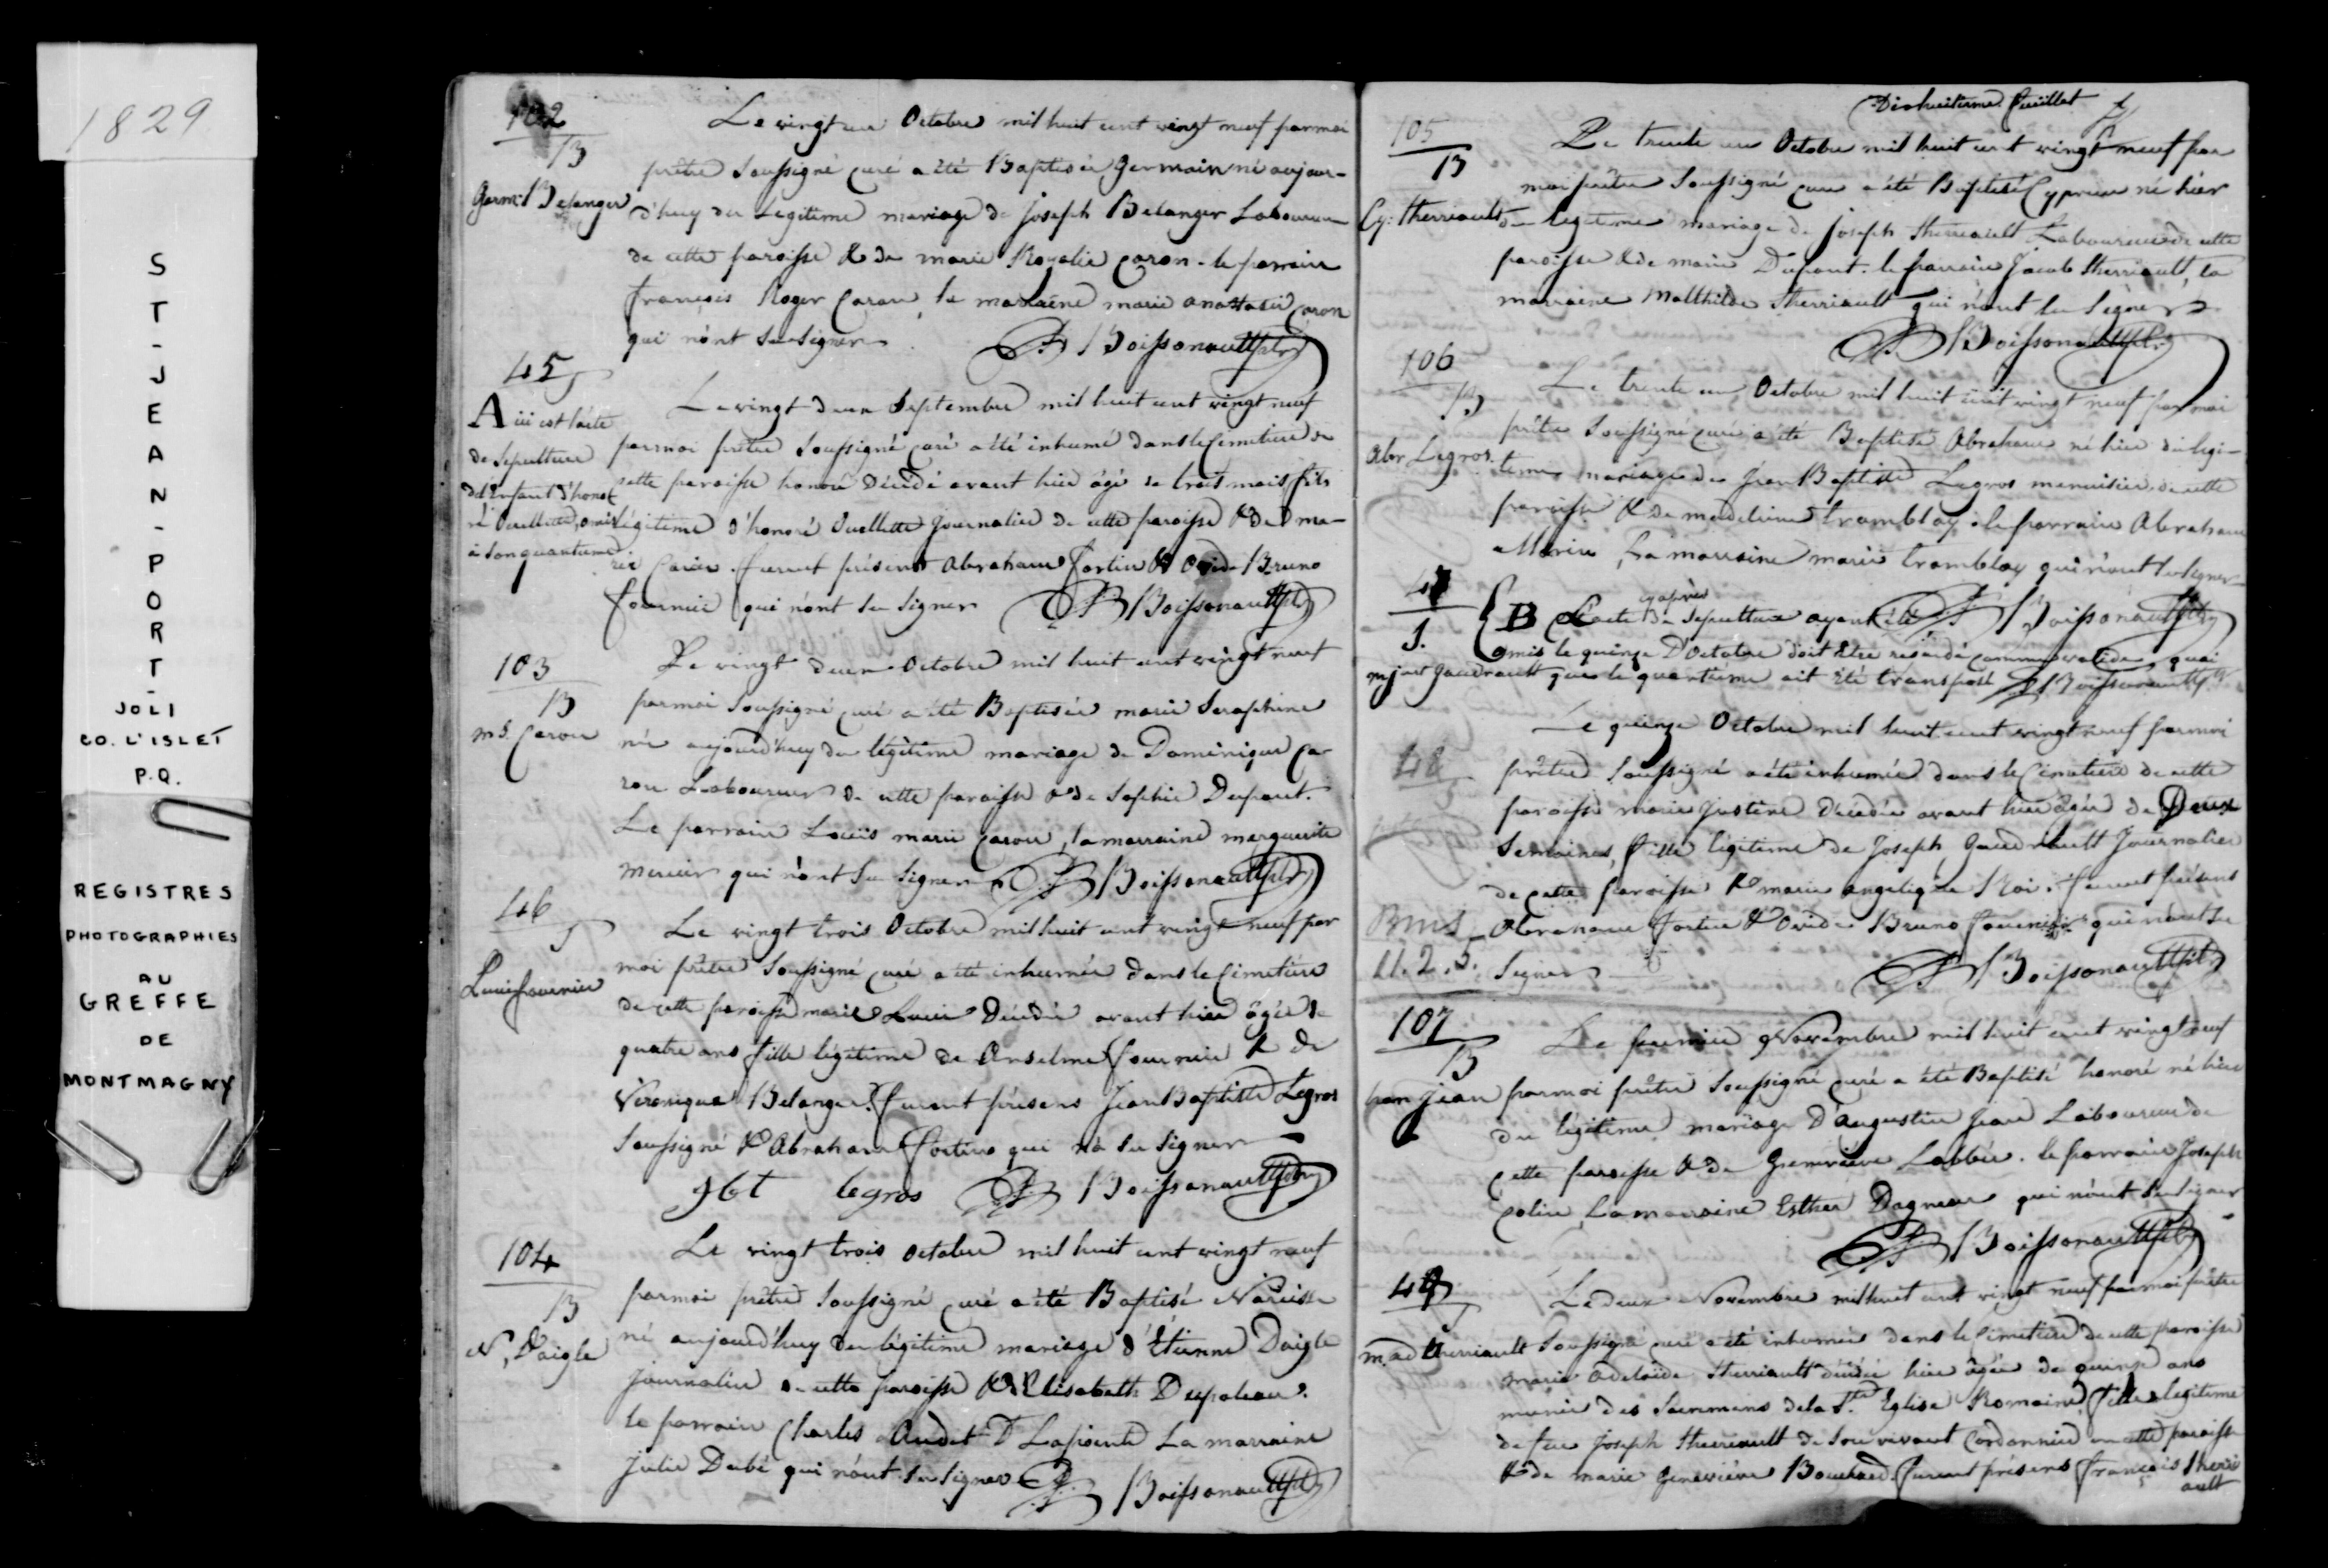 1829
ST-JEAN-PORT-
JOLI
CO. L'ISLET
P.Q.
REGISTRES
PHOTOGRAPHIES
AU
GREFFE
DE
MONTMAGNY
102
B
Germ: Belanger
Le vingt un Octobre mil huit cent vingt neuf par moi
prêtre Soussigné curé a été Baptisé Germain né aujour-
d'huy du Legitime mariage de Joseph Belanger Laboureur
de cette paroisse & de marie Rozalie Caron. le parrain
françois Roger Caron, la marraine marie anastasie Caron
qui n'ont su signer
Boissonnault ptre
45
S
A ici est l'acte
de Sepulture
de l'Enfant d'hono-
ré Ouellette, omis
à son quantieme
Le vingt deux Septembre mil huit cent vingt neuf
par moi prêtre Soussigné curé a été inhumé dans le Cimetiere de
cette paroisse honoré Décedé avant hier âgé de trois mois fils
légitime d'honoré Ouellette Journalier de cette paroisse & de ma-
rie Furent présens Abraham Fortin & Ovide Bruno
fournier qui n'ont su signer Boissonnault ptre
103
B
m. S. Caron
Le vingt deux Octobre mil huit cent vingt neuf
par moi Soussigné curé a été Baptisée marie Seraphine
née aujourd'huy du légitime mariage de Dominique Ca-
ron Laboureur de cette paroisse & de Sophie Dupont.
Le parrain Louis marie Caron, la marraine marguerite
mercier qui n'ont su signer Boissonnault ptre
46
S
Luce fournier
Le vingt trois Octobre mil huit cent vingt neuf par
moi prêtre Soussigné curé a été inhumée dans le Cimetiere
de cette paroisse marie Luce Décedée avant hier âgée de
quatre ans fille légitime de Anselme fournier & de
Véronique Belanger. furent présens Jean Baptiste Legros
Soussigné & Abraham Fortin qui n'a su signer
jbt legros Boissonnault ptre
104
B
N. Daigle
Le vingt trois Octobre mil huit cent vingt neuf
par moi prêtre Soussigné curé a été Baptisé Narcisse
né aujourd'huy du légitime mariage d'Étienne Daigle
Journalier de cette paroisse & d'Elisabeth Duponleau.
le parrain Charles Audet d Lapointe La marraine
Julie Dubé qui n'ont su signer
Boissonnault ptre
Dixhuitieme feuillet
105
B
Cy: Therriault
Le trente un Octobre mil huit cent vingt neuf par
moi prêtre Soussigné curé a été Baptisé Cyprien né hier
du légitime mariage de Joseph Therriault Laboureur de cette
paroisse & de marie Dupont. le parrain Jacob Therriault, la
marraine Malthilde Therriault qui n'ont su signer
Boissonnault ptre
106
B
Abr Legros.
Le trente un Octobre mil huit cent vingt neuf par moi
prêtre Soussigné curé a été Baptisé Abraham né hier du legi-
time mariage de Jean Baptiste Legros menuisier de cette
paroisse & de madeleine Tramblay. le parrain Abraham
Morin, la marraine marie Tramblay qui n'ont su signer
Boissonnault ptre
47
S.
B L'acte cy après de Sepulture ayant été
omis le quinze D'octobre doit être regardé comme valide, quoi
que le quantième ait été transposé Boissonnault ptre
m just Gaudrault
48
Le quinze Octobre mil huit cent vingt neuf par moi
prêtre Soussigné a été inhumée dans le Cimetiere de cette
paroisse marie Justine Décedée avant hier âgée de Deux
Semaines, fille légitime de Joseph Gaudrault Journalier
de cette paroisse & marie angelique Roi. furent présens
Abraham Fortin & Ovide Bruno fournier qui n'ont su
signer
Boissonnault ptre
BMS
11.2.5.
107
B
hon Jean
Le premier Novembre mil huit cent vingt neuf
par moi prêtre Soussigné curé a été Baptisé honoré né hier
du légitime mariage D'augustin Jean Laboureur de
Cette paroisse & de Genevieve Labbée. le parrain Joseph
Colin, La marraine Esther Dagneau qui n'ont su signer
Boissonnault ptre
49
S
m. ad Therriault
Le deux Novembre mil huit cent vingt neuf par moi prêtre
Soussigné curé a été inhumée dans le Cimetiere de cette paroisse
marie adelaïde Therriault décédée hier âgée de quinze ans
munie des Sacremens de la Ste. Eglise Romaine, fille legitime
de feu Joseph Therriault de Son vivant Cordonnier en cette paroisse
& de marie Geneviève Bouchard. furent présens françois Theri
ault